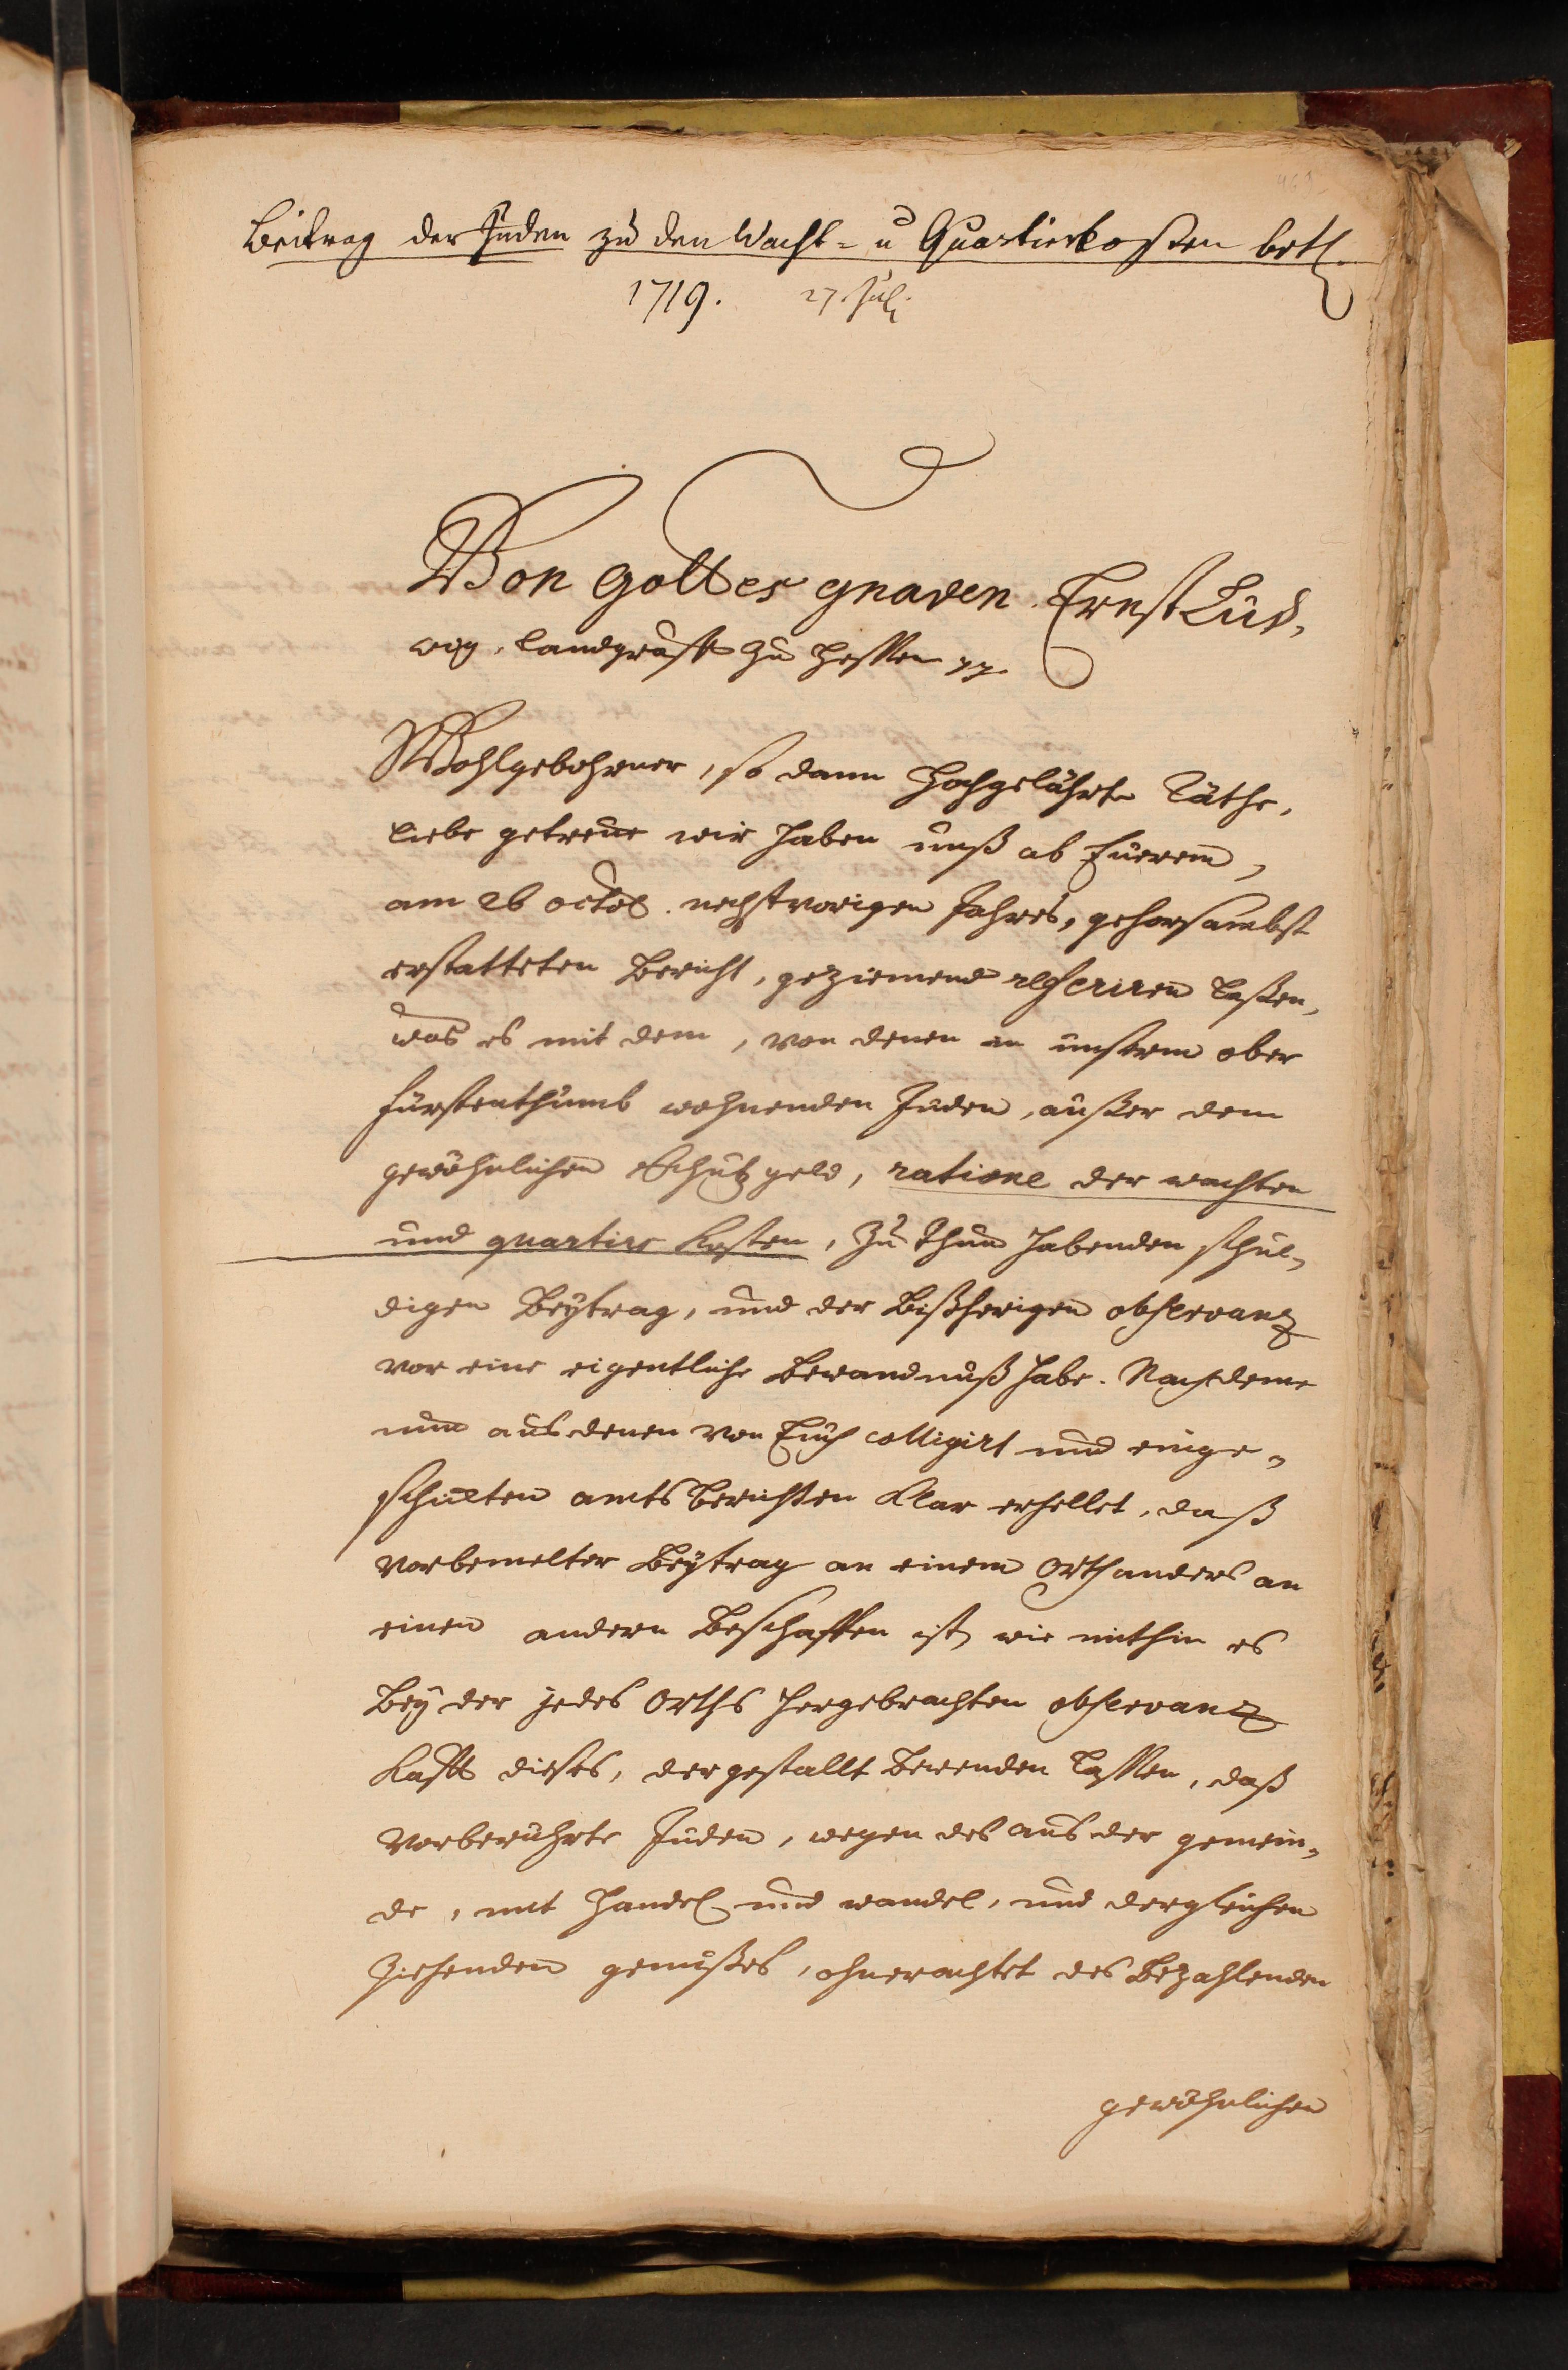 Beitrag der Juden zu den Wacht- u Quartierkosten betr.
1719. 27. Juli
Von Gottes gnaden Ernst Lud,
wig, Landgraff zu Hessen pp.
Wohlgebohrner, so dann Hochgelährte Räthe,
liebe getreue wir haben unß ab Euerem,
am 26 octob. nechstvorigen Jahres, gehorsambst
erstatteten Bericht, geziemend referiren laßen,
was es mit dem, von denen in unserm ober
fürstenthumb wohnenden Juden, außer dem
gewöhnlichen Schutzgeld, ratione der wachten
und quartirs Kosten, zu thun habenden schul-
digen Beytrag, und der bißherigen observanz
vor eine eigentliche Bewandnuß habe. Nachdeme
nun aus denen von Euch colligirt und einge-
schickten amts Berichten klar erhellet, daß
vorbemelter Beytrag an einem Orth anders an
einen andern beschaffen ist, wir mithin es
bey der jedes Orths hergebrachten observanz
Krafft dieses, dergestallt bewenden lassen, daß
vorberührte Juden, wegen des aus der gemein-
de, mit Handel und wandel, und dergleichen
ziehenden genußes, ohnerachtet des bezahlenden
gewöhnlichen